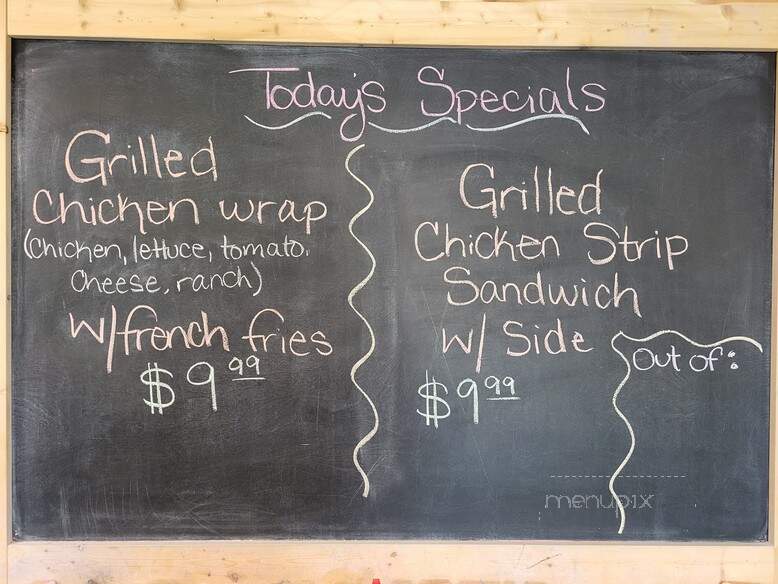 Today's Specials
Grilled
Chicken wrap
(Chicken, lettuce, tomato,
Cheese, ranch)
W/french fries
$9.99
Grilled
Chicken Strip
Sandwich
W/ Side
$9.99
Out of:
menupix